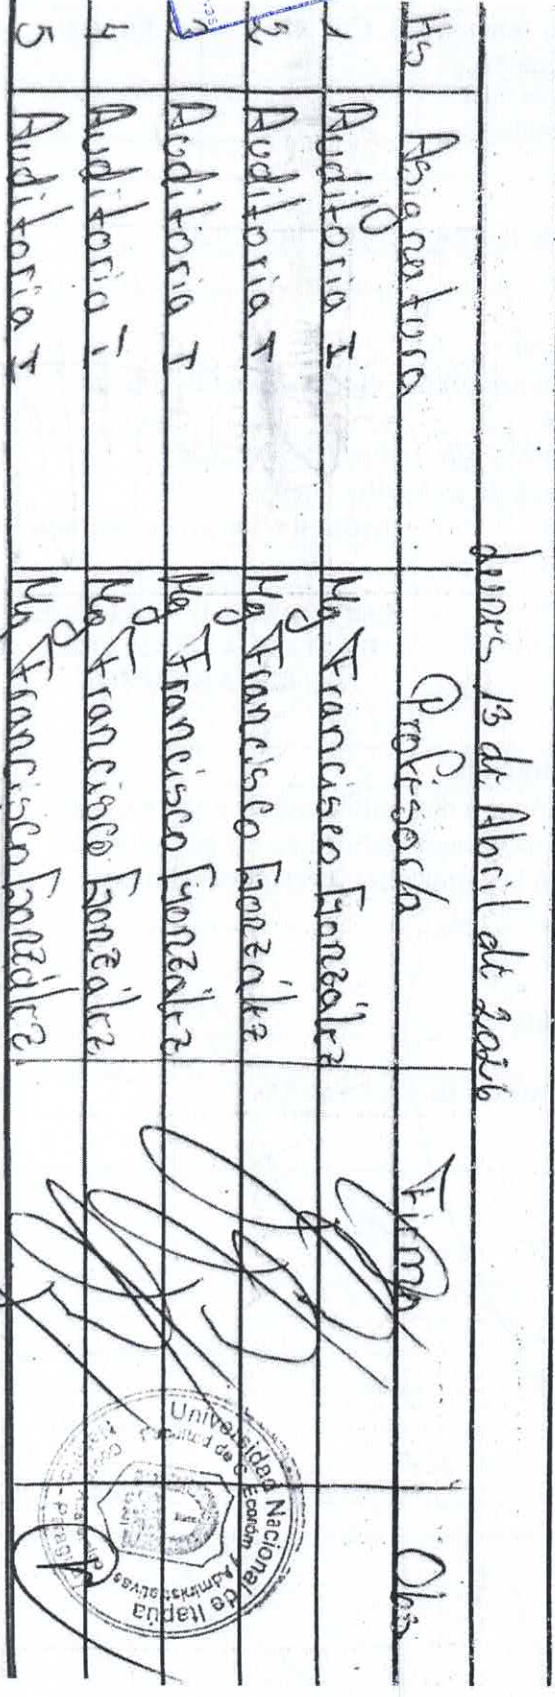 Lunes 13 de Abril de 2026
Hs Asignatura Profesor/a Firma Obs
1 Auditoria I Mg Francisco González
2 Auditoria I Mg Francisco González
3 Auditoria I Mg Francisco González
4 Auditoria I Mg Francisco González
5 Auditoria I Mg Francisco González
Universidad Nacional de Itapúa
Facultad de C. Econom. y Administrativas